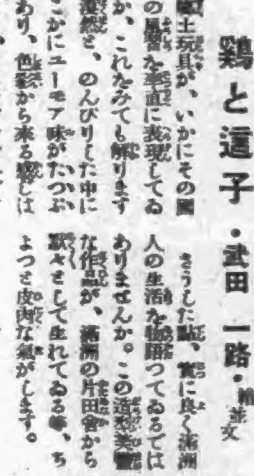 鶏と這子・武田 一路・繪並文
郷土玩具が、いかにその國
の風習を率直に表現してゐ
か、これをみても解ります
漠然と、のんびりした中に
こかにユーモア味がたつぷ
あり、色彩から来る感じは
さうした點、實に良く滿洲
人の生活を物語つてゐるでは
ありませんか。この造型美
な作品が、滿洲の片田舎から
々として生れてゐる等、ち
よつと皮肉な氣がします。